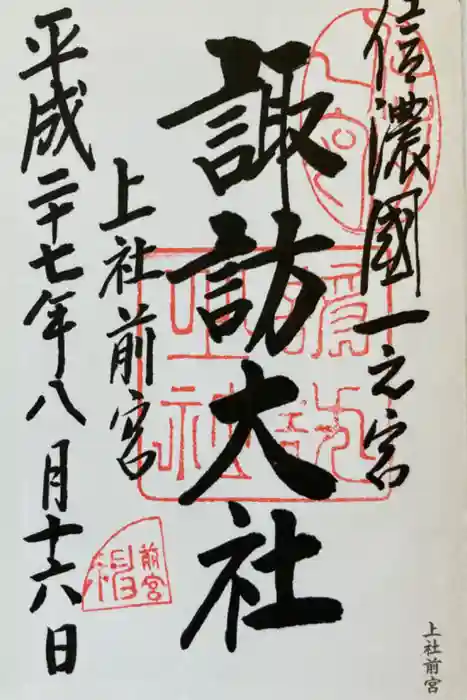 信濃國一之宮
諏訪大社
上社前宮
平成二十七年八月十六日
前宮
上社前宮